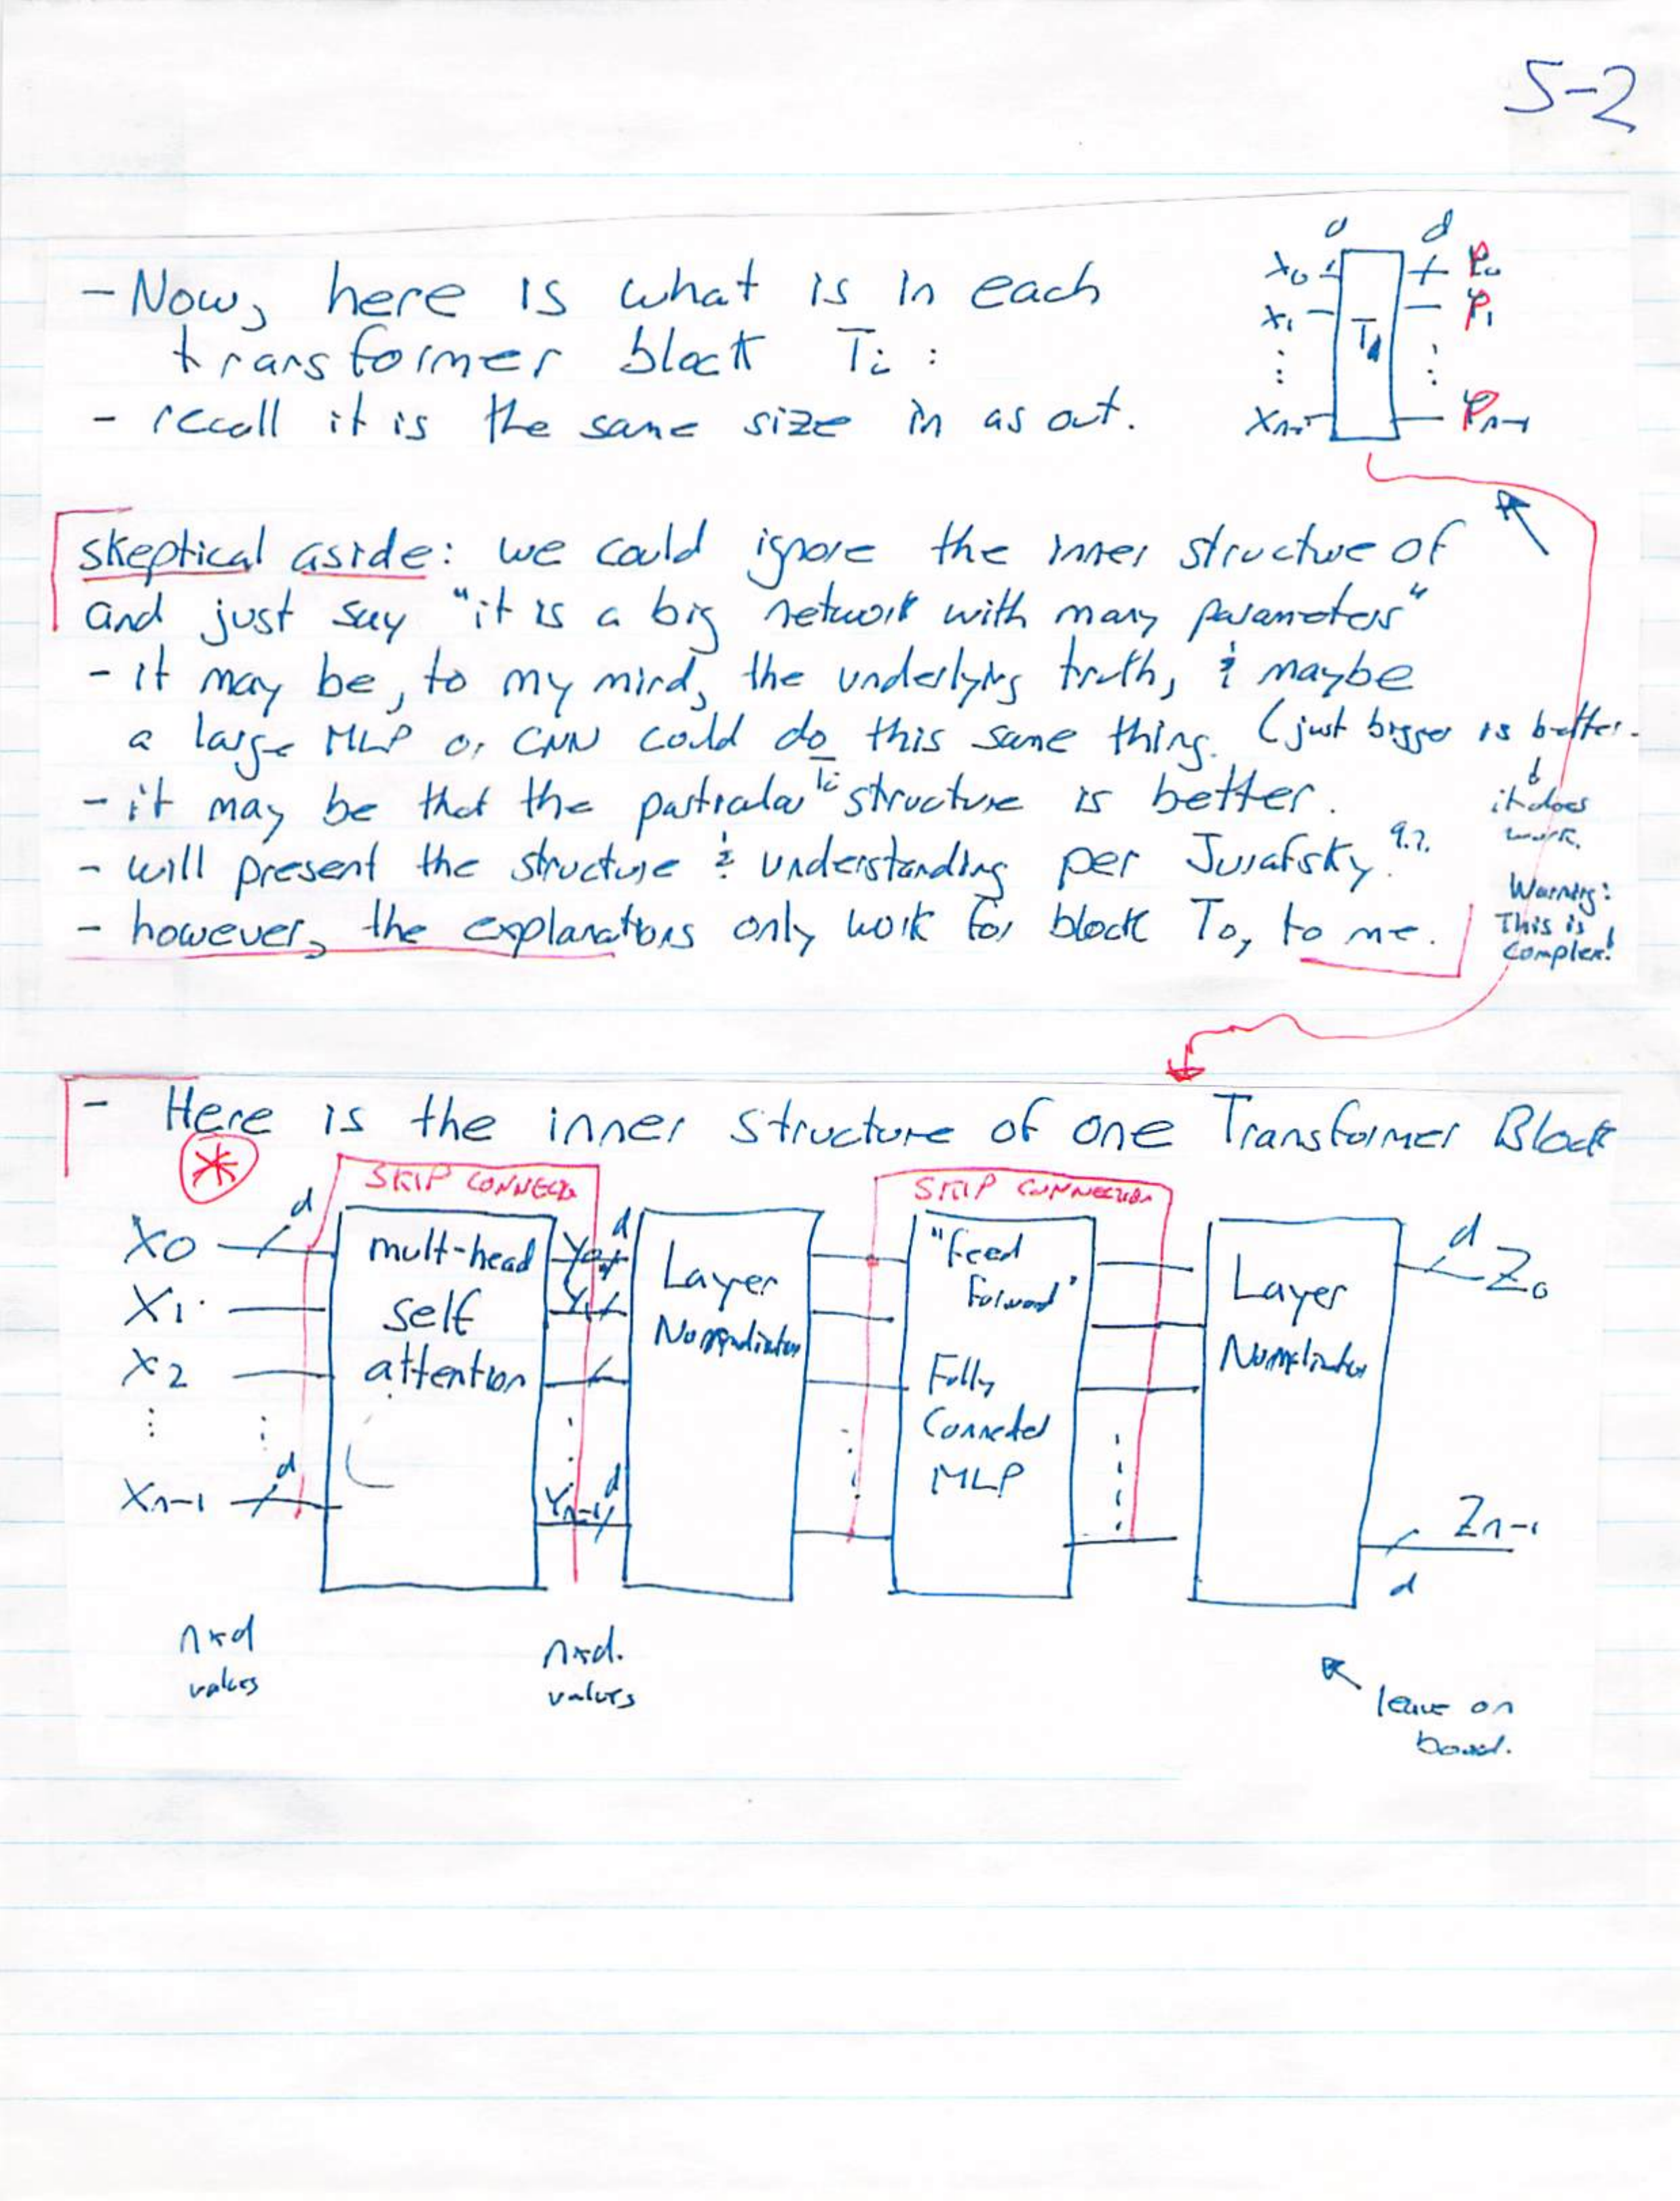 5-2
- Now, here is what is in each
transformer block Ti :
- recall it is the same size in as out.
d d
X0 P0
X1 P1
⋮ ⋮
Xn-1 Pn-1
skeptical aside: we could ignore the inner structure of
and just say "it is a big network with many parameters"
- it may be, to my mind, the underlying truth, & maybe
a large MLP or CNN could do this same thing. (just bigger is better.
↓
it does
work.
- it may be that the particular Ti structure is better.
- will present the structure & understanding per Jurafsky 9.2.
- however, the explanations only work for block T0, to me.
Warning:
This is
Complex!
- Here is the inner structure of one Transformer Block
*
SKIP CONNECTN
SKIP CONNECTION
X0 d
X1
X2
⋮ ⋮
Xn-1 d
mult-head
self
attention
Y0 d
Y1
⋮
Yn-1 d
Layer
Normalization
"Feed
Forward"
Fully
Connected
MLP
Layer
Normalization
d Z0
Zn-1
d
n×d
values
n×d.
values
leave on
board.